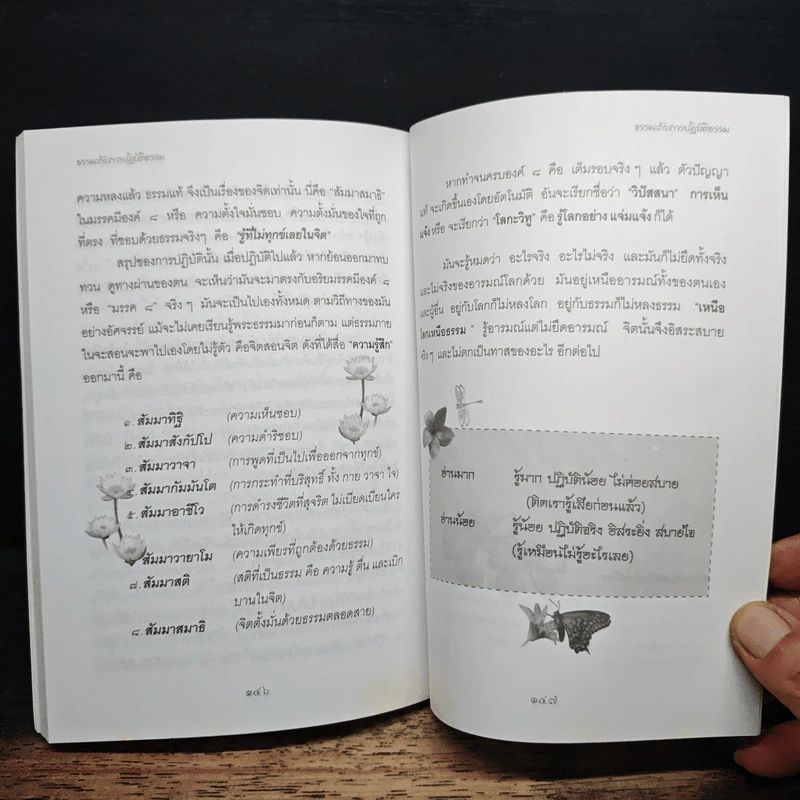 ธรรมะกับการปฏิบัติธรรม
ความหลงแล้ว ธรรมแท้ จึงเป็นเรื่องของจิตเท่านั้น นี่คือ "สัมมาสมาธิ"
ในมรรคมีองค์ ๘ หรือ ความตั้งใจมั่นชอบ ความตั้งมั่นของใจที่ถูก
ที่ตรง ที่ชอบด้วยธรรมจริงๆ คือ "รู้ที่ไม่ทุกข์เลยในจิต"
สรุปของการปฏิบัตินั้น เมื่อปฏิบัติไปแล้ว หากย้อนออกมาทบ
ทวน ดูทางผ่านของตน จะเห็นว่ามันจะมาตรงกับอริยมรรคมีองค์ ๘
หรือ "มรรค ๘" จริงๆ มันจะเป็นไปเองทั้งหมด ตามวิถีทางของมัน
อย่างอัศจรรย์ แม้จะไม่เคยเรียนรู้พระธรรมมาก่อนก็ตาม แต่ธรรมภาย
ในจะสอนจะพาไปเองโดยไม่รู้ตัว คือจิตสอนจิต ดังที่ได้สื่อ "ความรู้สึก"
ออกมานี้ คือ
๑. สัมมาทิฐิ (ความเห็นชอบ)
๒. สัมมาสังกัปโป (ความดำริชอบ)
๓. สัมมาวาจา (การพูดที่เป็นไปเพื่อออกจากทุกข์)
๔. สัมมากัมมันโต (การกระทำที่บริสุทธิ์ ทั้ง กาย วาจา ใจ)
๕. สัมมาอาชีโว (การดำรงชีวิตที่สุจริต ไม่เบียดเบียนใคร
ให้เกิดทุกข์)
สัมมาวายาโม (ความเพียรที่ถูกต้องด้วยธรรม)
๗. สัมมาสติ (สติที่เป็นธรรม คือ ความรู้ ตื่น และเบิก
บานในจิต)
๘. สัมมาสมาธิ (จิตตั้งมั่นด้วยธรรมตลอดสาย)
๑๔๖
ธรรมะกับการปฏิบัติธรรม
หากทำจนครบองค์ ๘ คือ เต็มรอบจริงๆ แล้ว ตัวปัญญา
แท้ จะเกิดขึ้นเองโดยอัตโนมัติ อันจะเรียกชื่อว่า "วิปัสสนา" การเห็น
แจ้งหรือ จะเรียกว่า "โลกะวิทู" คือ รู้โลกอย่าง แจ่มแจ้งก็ได้
มันจะรู้หมดว่า อะไรจริง อะไรไม่จริง และมันก็ไม่ยึดทั้งจริง
และไม่จริงของอารมณ์โลกด้วย มันอยู่เหนืออารมณ์ทั้งของตนเอง
และผู้อื่น อยู่กับโลกก็ไม่หลงโลก อยู่กับธรรมก็ไม่หลงธรรม "เหนือ
โลกเหนือธรรม" รู้อารมณ์แต่ไม่ยึดอารมณ์ จิตนั้นจึงอิสระสบาย
จริงๆ และไม่ตกเป็นทาสของอะไร อีกต่อไป
อ่านมาก รู้มาก ปฏิบัติน้อย ไม่ค่อยสบาย
(ติดเรารู้เสียก่อนแล้ว)
อ่านน้อย รู้น้อย ปฏิบัติจริง อิสระยิ่ง สบายใจ
(รู้เหมือนไม่รู้อะไรเลย)
๑๔๗